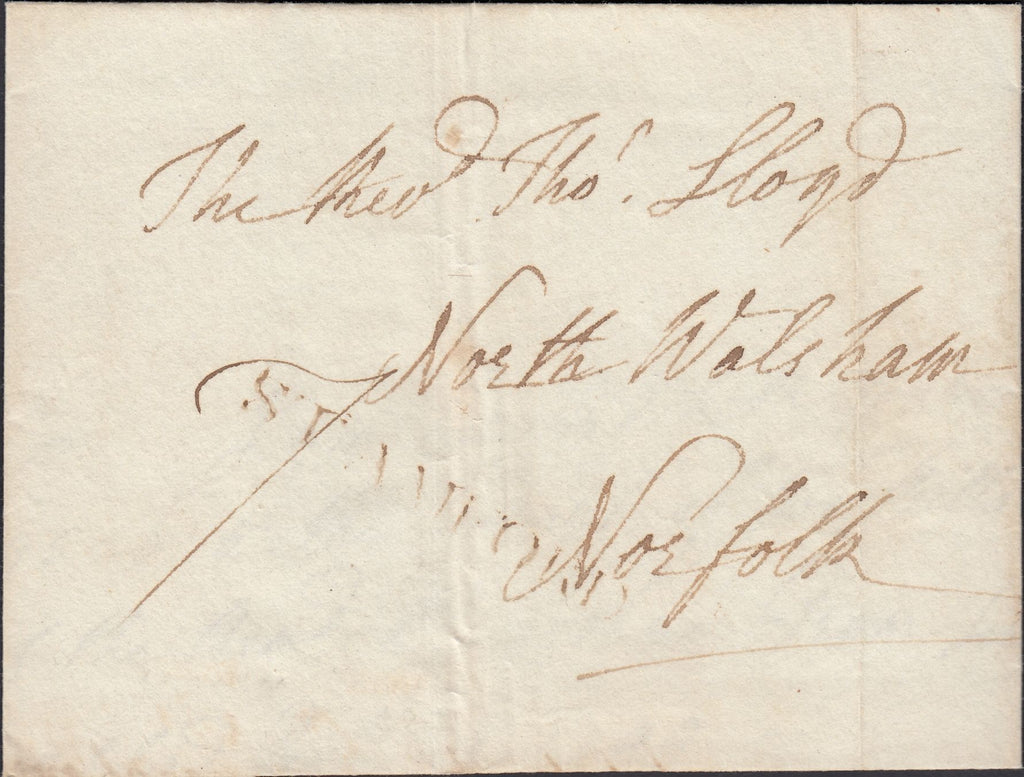 The Revd Thos. Lloyd
North Walsham
Norfolk